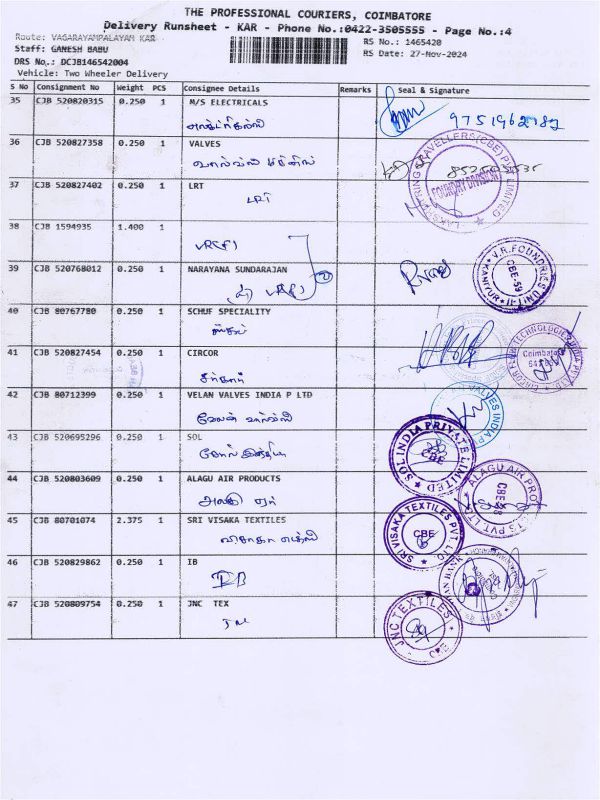 THE PROFESSIONAL COURIERS, COIMBATORE
Delivery Runsheet - KAR - Phone No.:0422-3505555 - Page No.:4
Route: VAGARAYAMPALAYAM KAR
RS No.: 1465420
Staff: GANESH BABU
RS Date: 27-Nov-2024
DRS No.: DCJB146542004
Vehicle: Two Wheeler Delivery
S No Consignment No Weight PCS Consignee Details Remarks Seal & Signature
35 CJB 520820315 0.250 1 M/S ELECTRICALS
36 CJB 520827358 0.250 1 VALVES
37 CJB 520827402 0.250 1 LRT
LRT
FOUNDRY DIVISION
38 CJB 1594935 1.400 1
VRF
39 CJB 520768012 0.250 1 NARAYANA SUNDARAJAN
V.R.FOUNDRIES UNIT-II
CBE-59
KANIYUR
40 CJB 80767780 0.250 1 SCHUF SPECIALITY
41 CJB 520827454 0.250 1 CIRCOR
CIRCOR FLOW TECHNOLOGIES INDIA PVT LTD
Coimbatore
42 CJB 80712399 0.250 1 VELAN VALVES INDIA P LTD
வேலன் வால்வ்
VALVES INDIA
43 CJB 520695296 0.250 1 SOL
சோல் இந்தியா
SOL INDIA PRIVATE LIMITED
CBE
44 CJB 520803609 0.250 1 ALAGU AIR PRODUCTS
அலகு ஏர்
ALAGU AIR PRODUCTS PVT LTD
45 CJB 80701074 2.375 1 SRI VISAKA TEXTILES
SRI VISAKA TEXTILES PVT. LTD.
CBE
46 CJB 520829862 0.250 1 IB
IB
47 CJB 520809754 0.250 1 JNC TEX
JNC TEXTILES